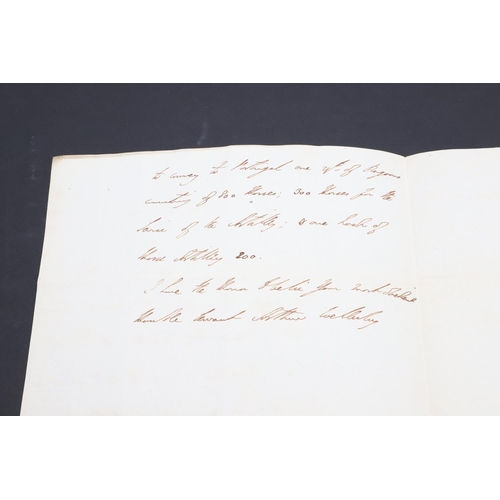 to convey to Portugal one regt. of Dragoons
consisting of 800 Horses; 300 Horses for the
Service of the Artillery; & one Troop of
Horse Artillery 200.
I have the Honor to be Sir Your most Obedient
Humble Servant Arthur Wellesley